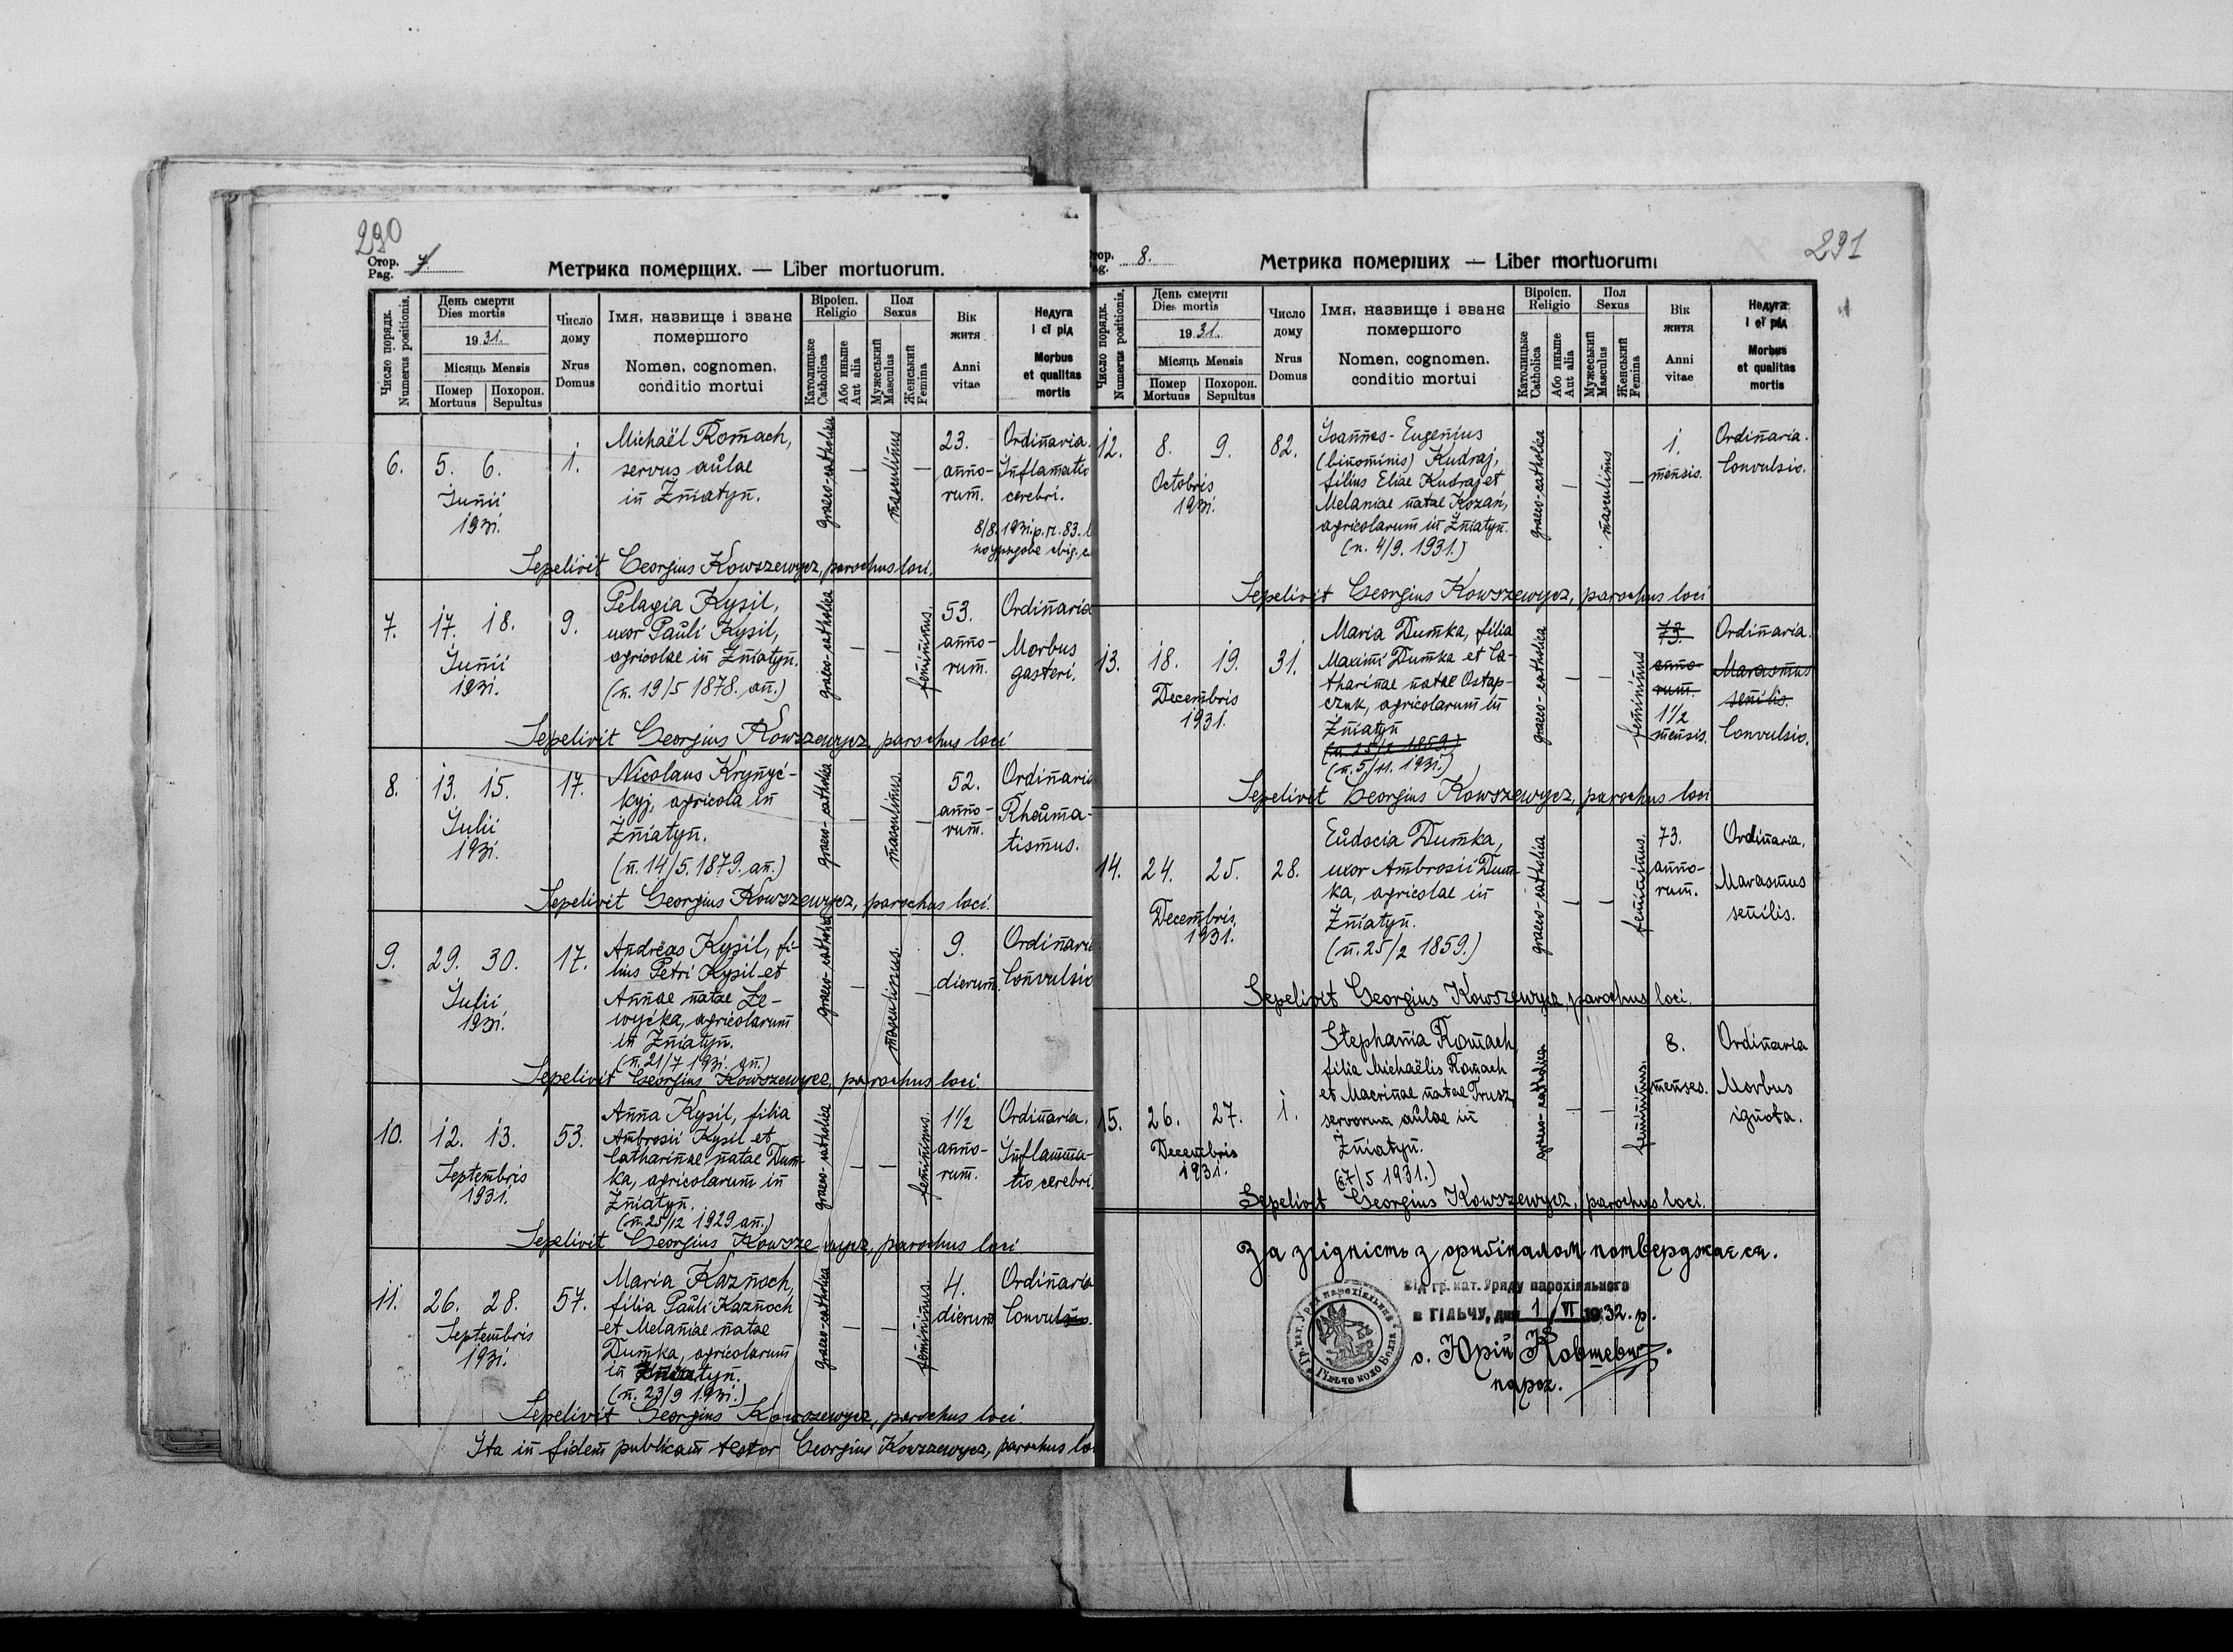 290
Стор. Pag. 7.
Метрика померщих. — Liber mortuorum.
Число порядк. Numerus positionis.
День смерти
Dies mortis
1931.
Місяць Mensis
Помер Mortuus
Похорон. Sepultus
Число дому
Nrus Domus
Імя, назвище і зване помершого
Nomen, cognomen, conditio mortui
Віроісп. Religio
Католицьке Catholica
Або иньше Aut alia
Пол Sexus
Мужеський Masculus
Женський Femina
Вік житя
Anni vitae
Недуга і єї рід
Morbus et qualitas mortis
6. 5. 6. 1. Michaël Romach, graeco-catholica — masculinus — 23. Ordinaria.
Junii servus aulae anno- Inflamatio
1931. in Żniatyn. rum. cerebri.
8/8. 1931 р. ч. 83.
Sepelivit Georgius Kowszewycz, parochus loci.
7. 17. 18. 9. Pelagia Kysil, graeco-catholica — — femininus. 53. Ordinaria
Junii uxor Pauli Kysil, anno- Morbus
1931. agricolae in Żniatyn. rum. gasteri.
(n. 19/5 1878. an.)
Sepelivit Georgius Kowszewycz, parochus loci
8. 13. 15. 17. Nicolaus Krynyć- graeco-catholica — masculinus. — 52. Ordinaria
Julii kyj, agricola in anno- Rheuma-
1931. Żniatyn. rum. tismus.
(n. 14/5. 1879. an.)
Sepelivit Georgius Kowszewycz, parochus loci.
9. 29. 30. 17. Andreas Kysil, fi- graeco-catholica — masculinus. — 9. Ordinaria
Julii lius Petri Kysil et dierum. Convulsio
1931. Annae natae Le-
wyćka, agricolarum
in Żniatyn.
(n. 21/7 1931. an.)
Sepelivit Georgius Kowszewycz, parochus loci.
10. 12. 13. 53. Anna Kysil, filia graeco-catholica — — femininus. 1 1/2 Ordinaria.
Septembris Ambrosii Kysil et anno- Inflamma-
1931. Catharinae natae Dum- rum. tio cerebri.
ka, agricolarum in
Żniatyn.
(n. 25/12 1929 an.)
Sepelivit Georgius Kowszewycz, parochus loci
11. 26. 28. 57. Maria Kaznoch, graeco-catholica — — femininus. 4. Ordinaria
Septembris filia Pauli Kaznoch dierum Convulsio.
1931. et Melaniae natae
Dumka, agricolarum
in Żniatyn.
(n. 23/9 1931.)
Sepelivit Georgius Kowszewycz, parochus loci.
Ita in fidem publicam testor Georgius Kowszewycz, parochus lo
291
Стор. Pag. 8.
Метрика померших — Liber mortuorum
Число порядк. Numerus positionis.
День смерти
Dies mortis
1931.
Місяць Mensis
Помер Mortuus
Похорон. Sepultus
Число дому
Nrus Domus
Імя, назвище і зване помершого
Nomen, cognomen, conditio mortui
Віроісп. Religio
Католицьке Catholica
Або иньше Aut alia
Пол Sexus
Мужеський Masculus
Женський Femina
Вік житя
Anni vitae
Недуга і єї рід
Morbus et qualitas mortis
12. 8. 9. 82. Joannes-Eugenius graeco-catholica — masculinus — 1. Ordinaria.
Octobris (binominis) Kudraj, mensis. Convulsio.
1931. filius Eliae Kudraj et
Melaniae natae Kozań,
agricolarum in Żniatyn.
(n. 4/9. 1931.)
Sepelivit Georgius Kowszewycz, parochus loci
13. 18. 19. 31. Maria Dumka, filia graeco-catholica — — femininus 73. Ordinaria.
Decembris Maximi Dumka et Ca- anno- Marasmus
1931. tharinae natae Ostap- rum. senilis.
czuk, agricolarum in 1 1/2 Convulsio.
Żniatyn mensis.
(n. 25/2 1859.)
(n. 5/11. 1931.)
Sepelivit Georgius Kowszewycz, parochus loci
14. 24. 25. 28. Eudocia Dumka, graeco-catholica — — femininus. 73. Ordinaria.
Decembris uxor Ambrosii Dum- anno- Marasmus
1931. ka, agricolae in rum. senilis.
Żniatyn.
(n. 25/2 1859.)
Sepelivit Georgius Kowszewycz, parochus loci.
15. 26. 27. 1. Stephania Romach graeco-catholica — — femininus. 8. Ordinaria
Decembris filia Michaëlis Romach menses. Morbus
1931. et Macrinae natae Trusz, ignota.
servorum aulae in
Żniatyn.
(27/5 1931.)
Sepelivit Georgius Kowszewycz, parochus loci.
За згідність з оригіналом потверджаєся.
Від гр. кат. Уряду парохіяльного
в ГІЛЬЧУ, дня 1/VI 1932. р.
о. Юрій Ковшевич.
парох.